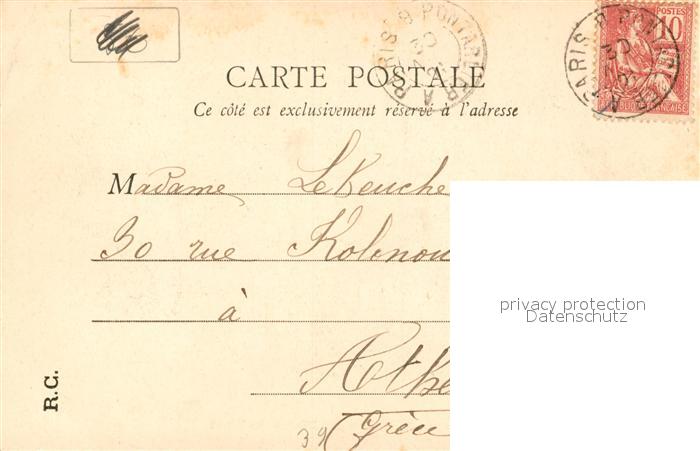 CARTE POSTALE
Ce côté est exclusivement réservé à l'adresse
POSTES
10
RÉPUBLIQUE FRANÇAISE
PARIS
Madame LeKeuche
30 rue Kolonou
à
Athe
Grèce
39
R.C.
privacy protection
Datenschutz